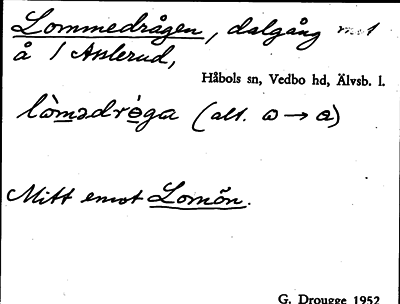 Lommedrågen, dalgång mot
å i Asslerud,
Håbols sn, Vedbo hd, Älvsb. l.
lòmədrɵ̀ga (alt. ɷ → a)
Mitt emot Lomön.
G. Drougge 1952